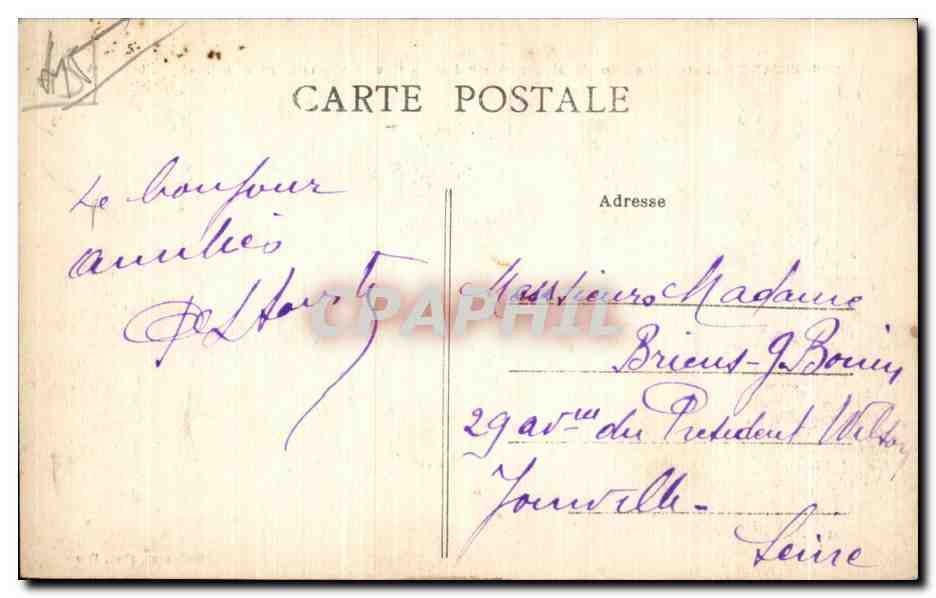 CARTE POSTALE
Le bonjour
Adresse
Messieurs Madame
Briens-J Bouin
29 av^nue du President Wilson
Joinville-
Seine
CPAPHIL